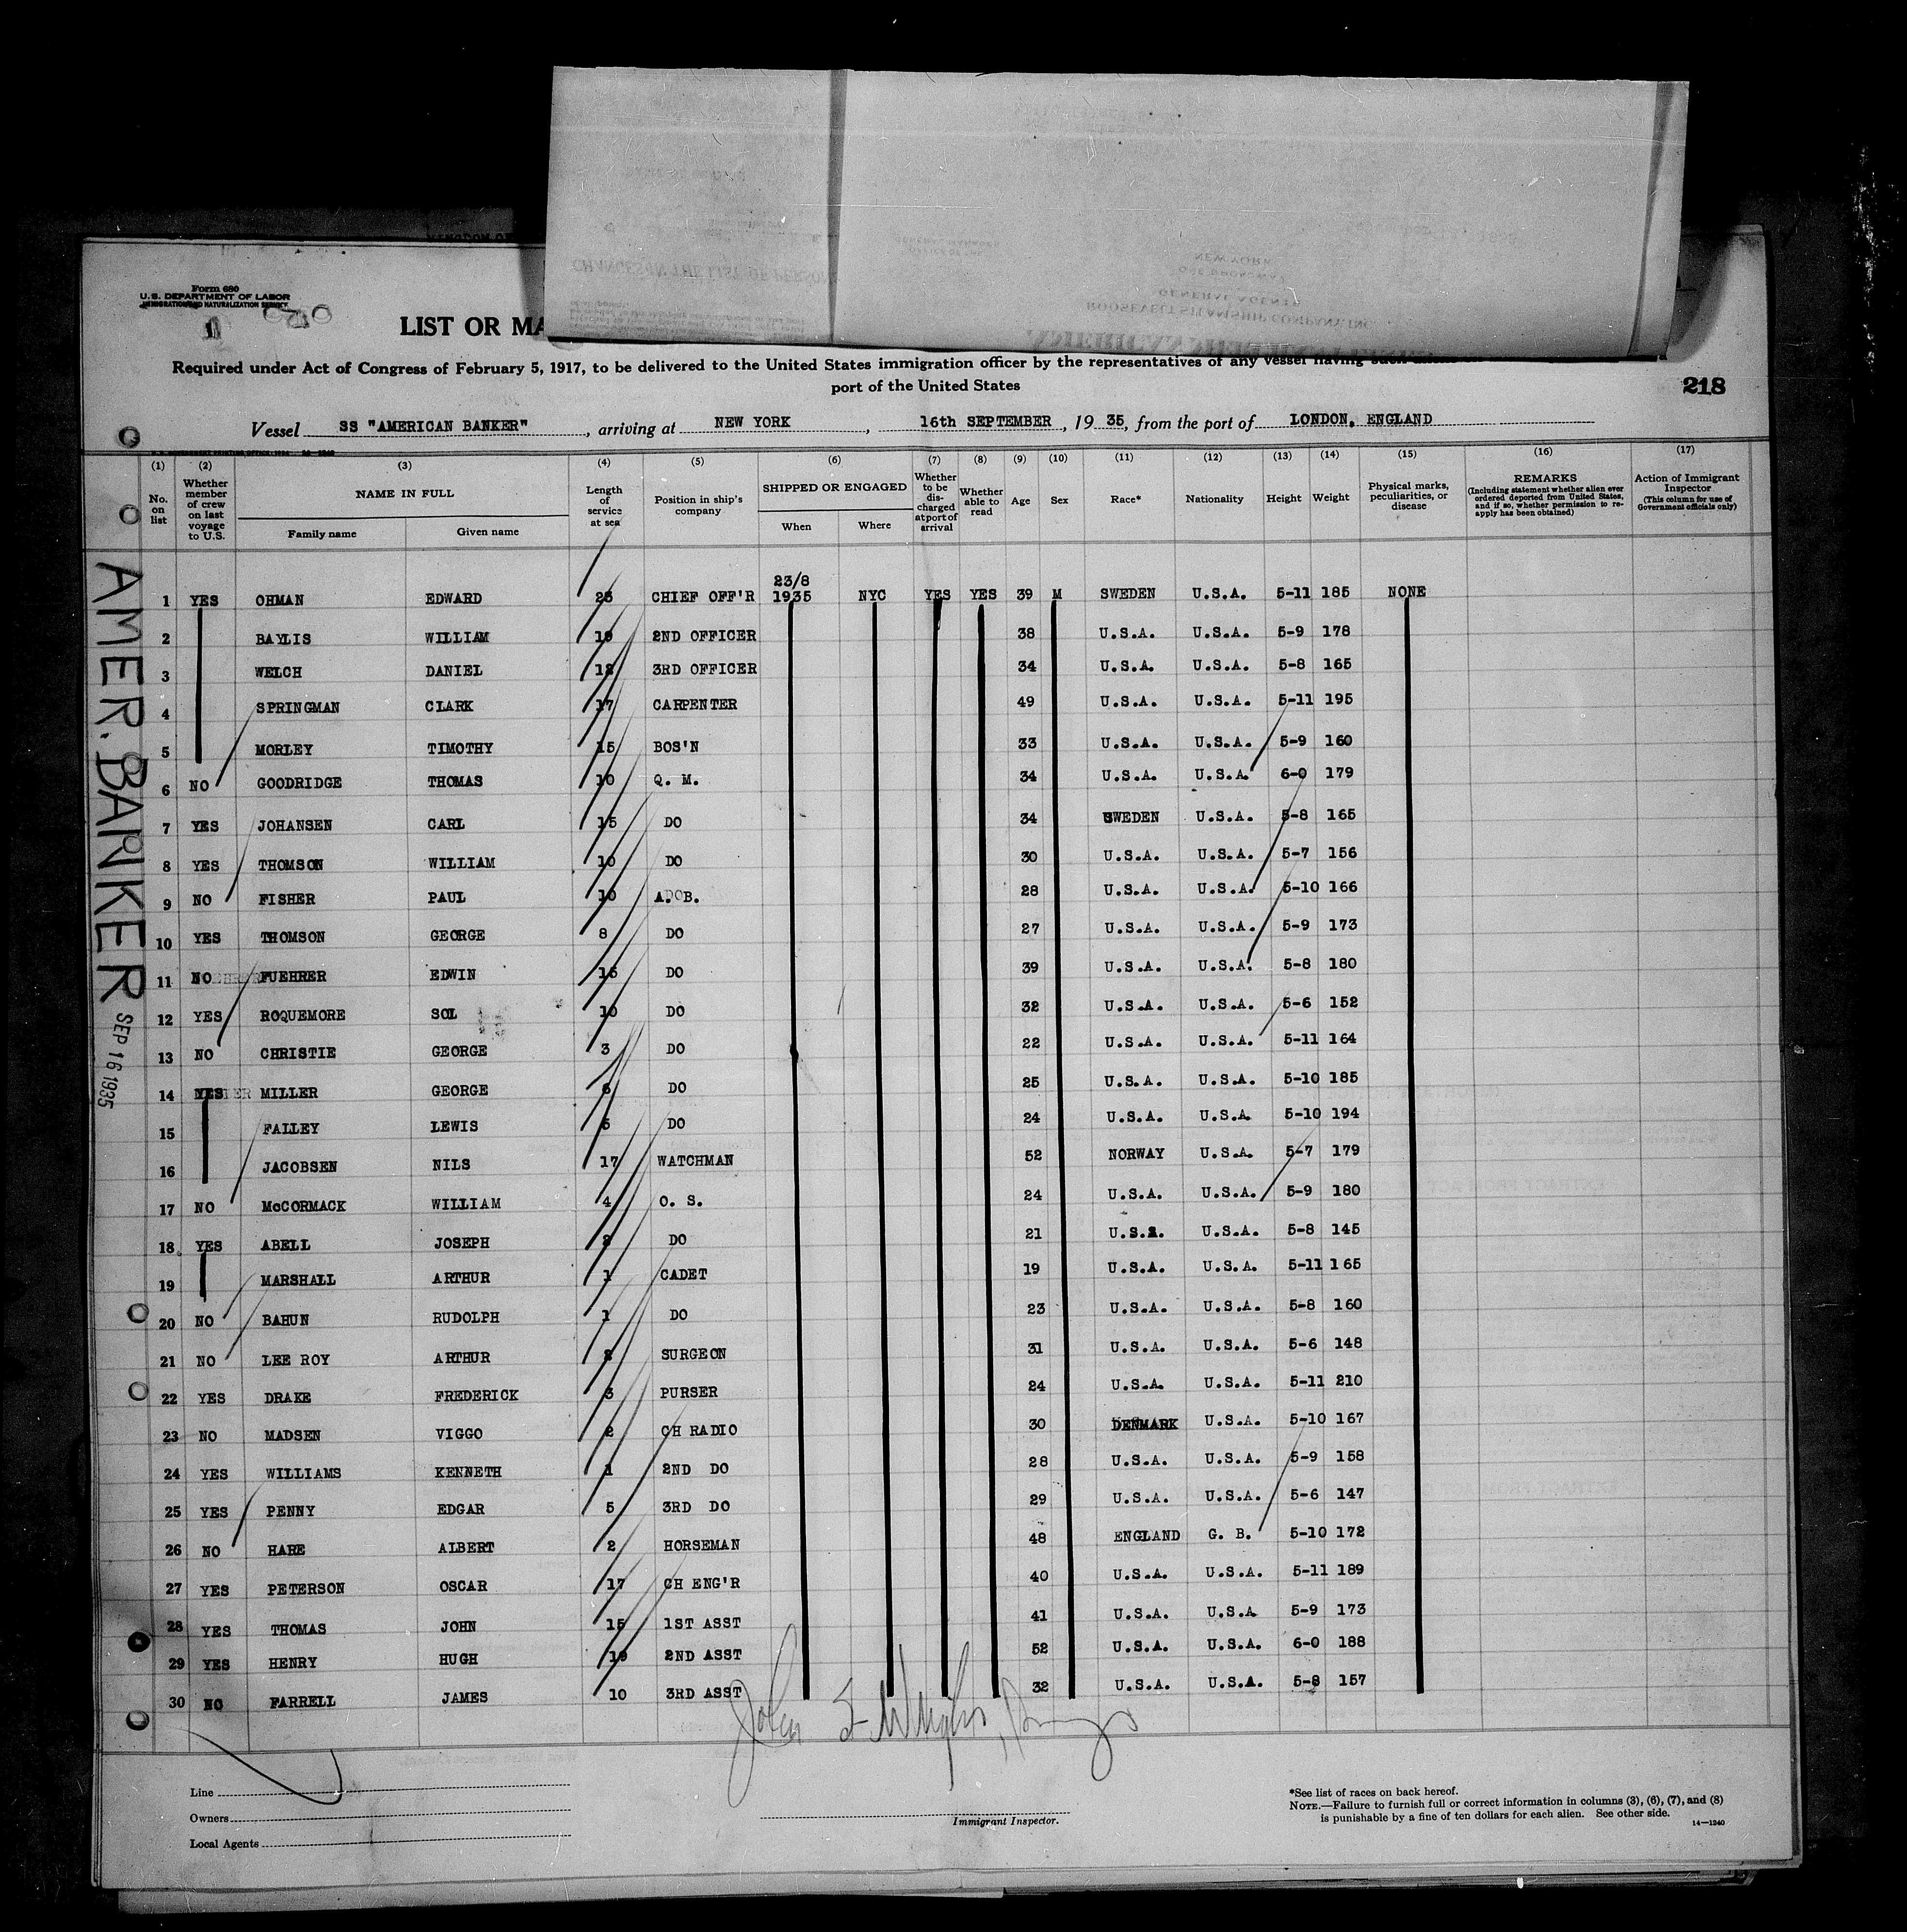 Form 680
U.S. DEPARTMENT OF LABOR
IMMIGRATION AND NATURALIZATION SERVICE
1
LIST OR MA
Required under Act of Congress of February 5, 1917, to be delivered to the United States immigration officer by the representatives of any vessel having such
port of the United States
218
Vessel SS "AMERICAN BANKER", arriving at NEW YORK, 16th SEPTEMBER, 1935, from the port of LONDON, ENGLAND
(1) (2) (3) (4) (5) (6) (7) (8) (9) (10) (11) (12) (13) (14) (15) (16) (17)
No. on list
Whether member of crew on last voyage to U.S.
NAME IN FULL
Family name
Given name
Length of service at sea
Position in ship's company
SHIPPED OR ENGAGED
When
Where
Whether to be discharged at port of arrival
Whether able to read
Age
Sex
Race*
Nationality
Height
Weight
Physical marks, peculiarities, or disease
REMARKS
(Including statement whether alien ever ordered deported from United States, and if so, whether permission to re-apply has been obtained)
Action of Immigrant Inspector
(This column for use of Government officials only)
AMER. BANKER
SEP 16 1935
23/8
1 YES OHMAN EDWARD CHIEF OFF'R 1935 NYC YES YES 39 M SWEDEN U.S.A. 5-11 185 NONE
2 BAYLIS WILLIAM 19 2ND OFFICER 38 U.S.A. U.S.A. 5-9 178
3 WELCH DANIEL 18 3RD OFFICER 34 U.S.A. U.S.A. 5-8 165
4 SPRINGMAN CLARK 17 CARPENTER 49 U.S.A. U.S.A. 5-11 195
5 MORLEY TIMOTHY 15 BOS'N 33 U.S.A. U.S.A. 5-9 160
6 NO GOODRIDGE THOMAS 10 Q. M. 34 U.S.A. U.S.A. 6-0 179
7 YES JOHANSEN CARL 15 DO 34 SWEDEN U.S.A. 5-8 165
8 YES THOMSON WILLIAM 10 DO 30 U.S.A. U.S.A. 5-7 156
9 NO FISHER PAUL 10 A. B. 28 U.S.A. U.S.A. 5-10 166
10 YES THOMSON GEORGE 8 DO 27 U.S.A. U.S.A. 5-9 173
11 NO FUEHRER EDWIN 16 DO 39 U.S.A. U.S.A. 5-8 180
12 YES ROQUEMORE SOL 10 DO 32 U.S.A. U.S.A. 5-6 152
13 NO CHRISTIE GEORGE 3 DO 22 U.S.A. U.S.A. 5-11 164
14 YES MILLER GEORGE 6 DO 25 U.S.A. U.S.A. 5-10 185
15 FALLEY LEWIS DO 24 U.S.A. U.S.A 5-10 194
16 JACOBSEN NILS 17 WATCHMAN 52 NORWAY U.S.A. 5-7 179
17 NO McCORMACK WILLIAM 4 O. S. 24 U.S.A. U.S.A. 5-9 180
18 YES ABELL JOSEPH 2 DO 21 U.S.A. U.S.A. 5-8 145
19 MARSHALL ARTHUR 1 CADET 19 U.S.A. U.S.A. 5-11 165
20 NO BAHUN RUDOLPH 1 DO 23 U.S.A. U.S.A. 5-8 160
21 NO LEE ROY ARTHUR SURGEON 31 U.S.A. U.S.A. 5-6 148
22 YES DRAKE FREDERICK 3 PURSER 24 U.S.A U.S.A. 5-11 210
23 NO MADSEN VIGGO 2 CH RADIO 30 DENMARK U.S.A. 5-10 167
24 YES WILLIAMS KENNETH 1 2ND DO 28 U.S.A. U.S.A. 5-9 158
25 YES PENNY EDGAR 5 3RD DO 29 U.S.A. U.S.A. 5-6 147
26 NO HARE ALBERT 2 HORSEMAN 48 ENGLAND G. B. 5-10 172
27 YES PETERSON OSCAR 17 CH ENG'R 40 U.S.A. U.S.A. 5-11 189
28 YES THOMAS JOHN 15 1ST ASST 41 U.S.A. U.S.A 5-9 173
29 YES HENRY HUGH 19 2ND ASST 52 U.S.A. U.S.A. 6-0 188
30 NO FARRELL JAMES 10 3RD ASST 32 U.S.A. U.S.A. 5-8 157
John
Line
Owners
Local Agents
Immigrant Inspector.
*See list of races on back hereof.
NOTE.—Failure to furnish full or correct information in columns (3), (6), (7), and (8)
is punishable by a fine of ten dollars for each alien. See other side.
14—1240